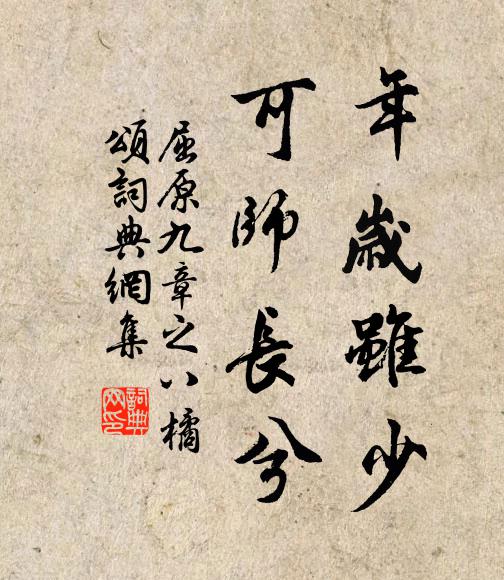 年歲雖少
可師長兮
屈原九章之八橘
頌詞典網集
詞典
网印